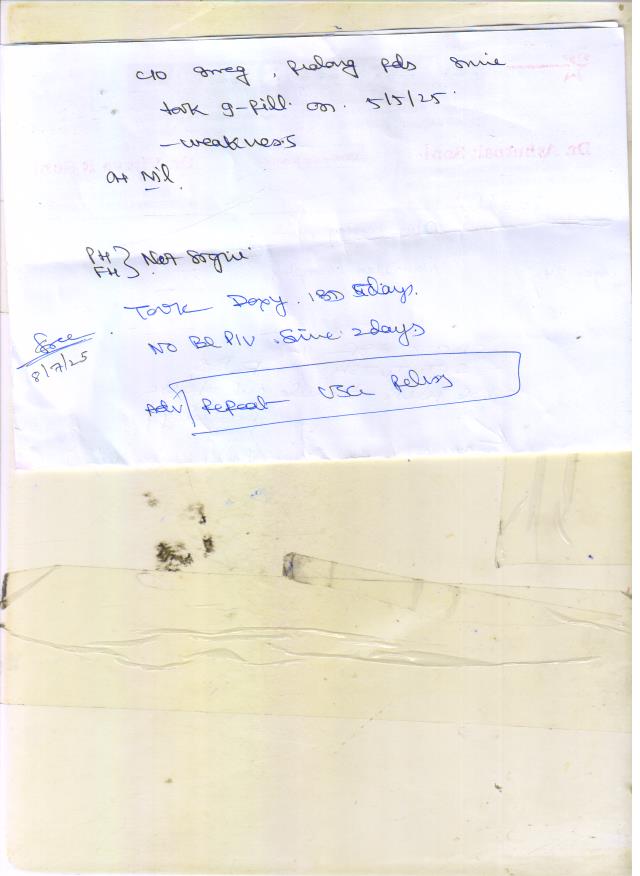 c/o irreg, prolong pds since
took g-pill on 5/5/25.
- weakness
OH Nil.
PH } Not Signi.
FH
Took Doxy. 1BD 5days.
NO Bl P/V. Since 2days
8/7/25
Adv Repeat USG Pelvis